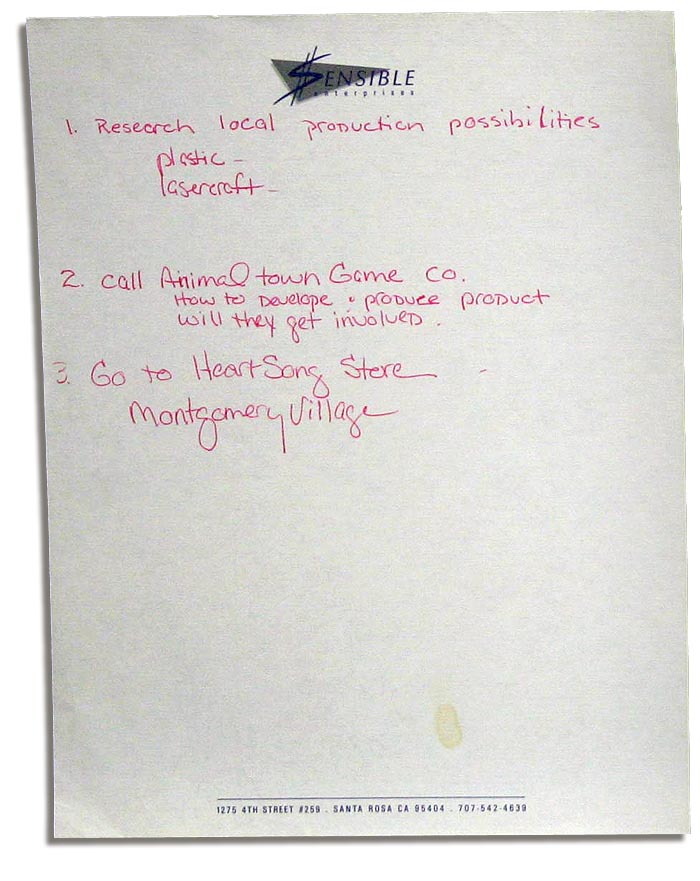 $ENSIBLE
enterprises
1. Research local production possibilities
plastic -
lasercraft -
2. call Animal town Game Co.
How to Develope · produce product
will they get involved.
3. Go to HeartSong Store -
Montgomery Village
1275 4TH STREET #259 . SANTA ROSA CA 95404 . 707-542-4639